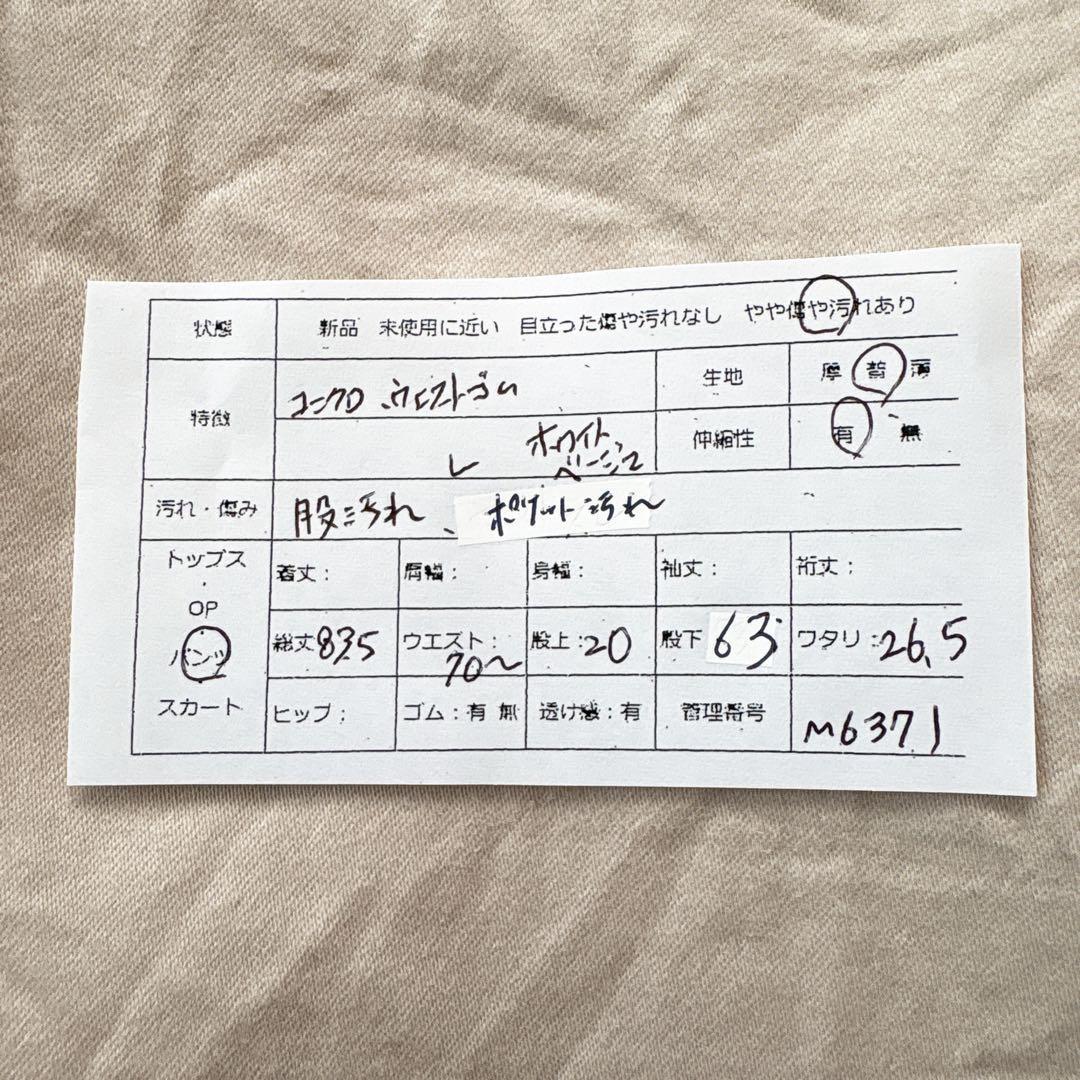 状態 新品 未使用に近い 目立った傷や汚れなし やや傷や汚れあり
特徴 ユニクロ ウエストゴム 生地 厚 普 薄
ホワイト、 伸縮性 有 無
ベージュ
汚れ・傷み 股汚れ、ポケット汚れ
トップス 着丈: 肩幅: 身幅: 袖丈: 裄丈:
OP
パンツ 総丈 83.5 ウエスト: 70〜 股上:20 股下 63 ワタリ:26.5
スカート ヒップ: ゴム:有 無 透け感:有 管理番号 M6371